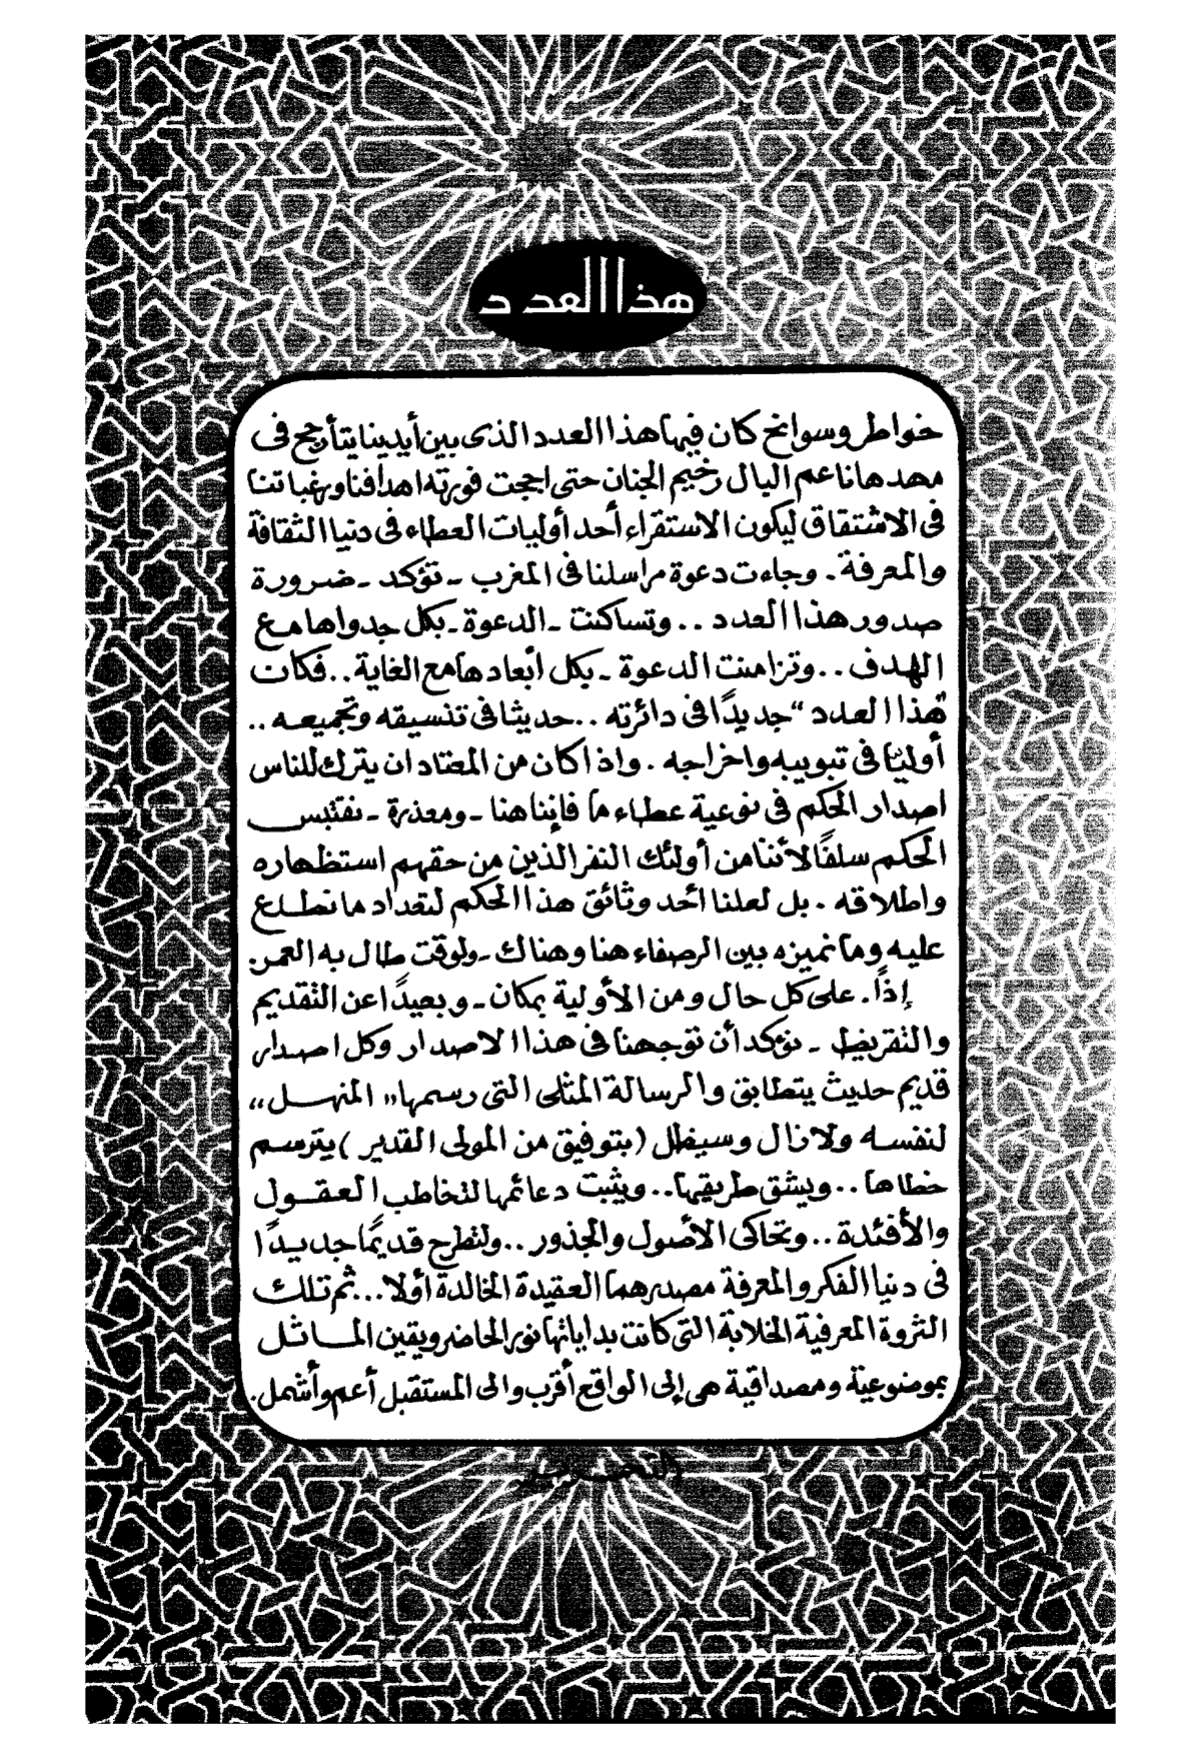 هذا العدد
خواطر وسوانح كان فيها هذا العدد الذى بين أيدينا يتأرجح فى
مهدها ناعم البال رخيم الجنان حتى اججت فورته اهدافنا ورغباتنا
فى الاشتقاق ليكون الاستقراء أحد أوليات العطاء فى دنيا الثقافة
والمعرفة . وجاءت دعوة مراسلنا فى المغرب - تؤكد - ضرورة
صدور هذا العدد .. وتساكنت - الدعوة - بكل جدواها مع
الهدف .. وتزامنت الدعوة - بكل أبعادها مع الغاية .. فكان
هذا العدد " جديدًا فى دائرته .. حديثا فى تنسيقه وتجميعه ..
أوليًا فى تبويبه واخراجه . واذا كان من المعتاد ان يترك للناس
اصدار الحكم فى نوعية عطاء ما فإننا هنا - ومعذرة - نقتبس
الحكم سلفًا لأننا من أولئك النفر الذين من حقهم استظهاره
واطلاقه . بل لعلنا أحد وثائق هذا الحكم لتعداد ما نطلع
عليه وما نميزه بين الرصفاء هنا وهناك - ولوقت طال به العمر .
إذاً . على كل حال ومن الأولية بمكان - وبعيدًا عن التقديم
والتقريظ - نؤكد أن توجهنا فى هذا الاصدار وكل اصدار
قديم حديث يتطابق والرسالة المثلى التى رسمها " المنهل "
لنفسه ولا زال وسيظل ( بتوفيق من المولى القدير ) يترسم
خطاها .. ويشق طريقها .. ويثبت دعائمها لتخاطب العقول
والأفئدة .. وتحاكى الأصول والجذور .. ولتطرح قديمًا جديدًا
فى دنيا الفكر والمعرفة مصدرهما العقيدة الخالدة أولا ... ثم تلك
الثروة المعرفية الخلابة التى كانت بداياتها نور الحاضر ويقين الماثل
بموضوعية ومصداقية هى إلى الواقع أقرب والى المستقبل أعم وأشمل .